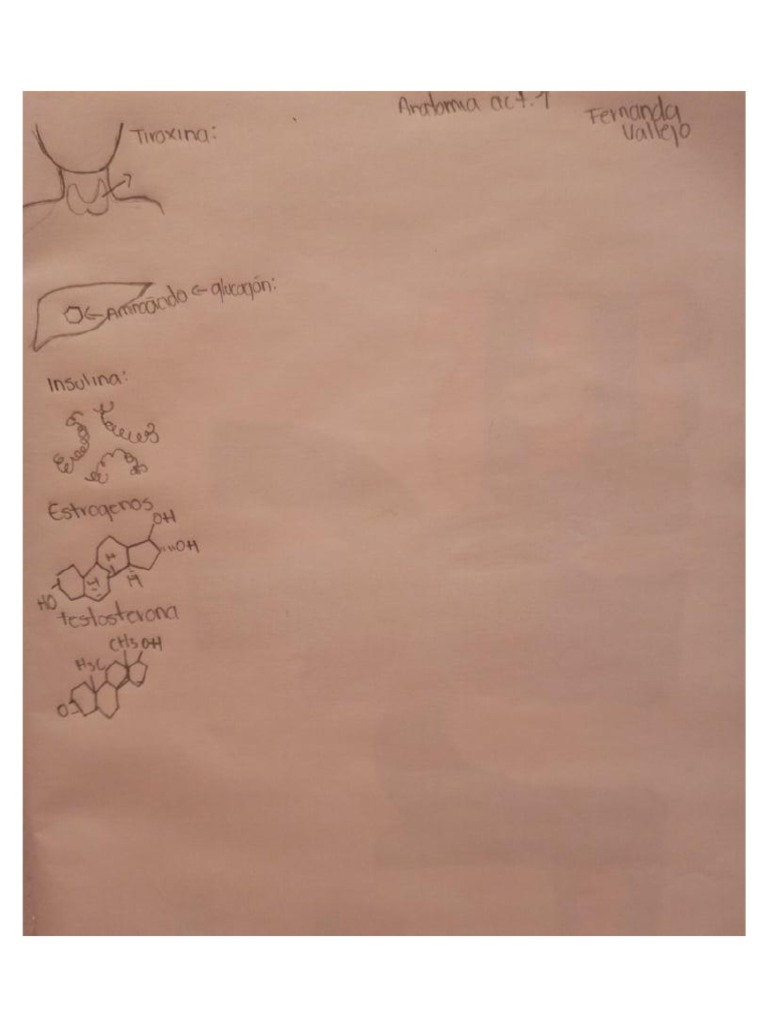 Anatomia act. 1
Fernanda
Vallejo
Tiroxina:
Aminoácido ← glucagón:
Insulina:
Estrogenos
OH
OH
H
H
H
HO
testosterona
CH3 OH
H3C
O